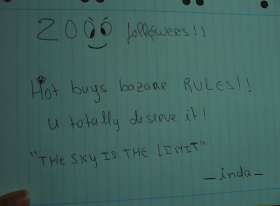 2000 followers!!
Hot buys bazane RULES!!
u totally diserve it!
"THE SKY IS THE LIMIT"
_inda_